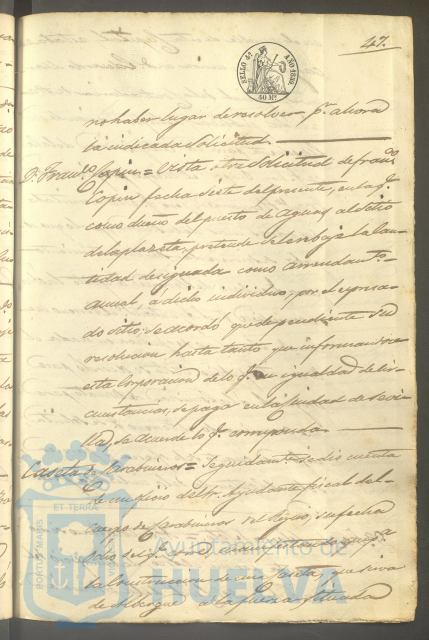 47.
SELLO 4º AÑO 1852
40 Ms.
no haber lugar de resolver pr. ahora
la indicada Solicitud.
D. Franco. Copin = Vista otra Solicitud de franco.
Copin fecha siete del presente, en la q.
como dueño del puesto de Aguas al sitio
de la plazeta, pretende se le rebaje la can-
tidad designada como arrendamto.
anual, a dicho individuo, por el espresa-
do sitio, se acordó quede pendiente su
resolucion hasta tanto que informandose
esta Corporacion de lo q. en igualdad de cir-
cunstancias, se paga en la Ciudad de Sevi-
lla, se acuerde lo q. corresponda.
Caseta de Carabineros = Seguidamente se dio cuenta
de un oficio del Sr. Ayudante fiscal del
cuerpo de Carabineros del Reyno, su fecha
la construccion de una Caseta, que sirva
de Albergue a la fuerza situada
PORTUS MARIS ET TERRAE
Ayuntamiento de
HUELVA